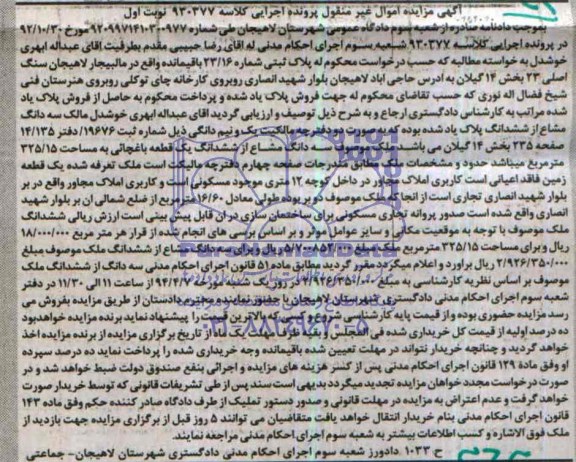 آگهی مزایده اموال غیر منقول پرونده اجرایی کلاسه ۹۳۰۳۷۷ نوبت اول
بموجب دادنامه صادره از شعبه سوم دادگاه عمومی شهرستان لاهیجان طی شماره ۹۲۰۹۹۷۱۴۱۰۳۰۰۹۷۷ مورخ ۹۲/۱۰/۳۰
در پرونده اجرایی کلاسه ۹۳۰۳۷۷ شعبه سوم اجرای احکام مدنی له اقای رضا حبیبی مقدم بطرفیت اقای عبداله ابهری
خوشدل به خواسته مطالبه که حسب درخواست محکوم له پلاک ثبتی شماره ۲۳/۱۶ باقیمانده واقع در مالبیجار لاهیجان سنگ
اصلی ۲۳ بخش ۱۴ گیلان به آدرس حاجی اباد لاهیجان بلوار شهید انصاری روبروی کارخانه چای توکلی روبروی هنرستان فنی
شیخ فضال اله نوری که حسب تقاضای محکوم له جهت فروش پلاک یاد شده و پرداخت محکوم به حاصل از فروش پلاک یاد
شده مراتب به کارشناس دادگستری ارجاع و به شرح ذیل توصیف و ارزیابی گردید اقای عبداله ابهری خوشدل مالک سه دانگ
مشاع از ششدانگ پلاک یاد شده بوده که بصورت دو دفترچه مالکیت یک و نیم دانگی ذیل شماره ثبت ۱۹۶۷۶/ دفتر ۱۴/۱۳۵
صفحه ۲۳۵ بخش ۱۴ گیلان می باشد. ملک موصوف سه دانگ مشاع از ششدانگ یک قطعه باغچائی به مساحت ۳۲۵/۱۵
مترمربع میباشد حدود و مشخصات ملک مطابق مندرجات صفحه چهارم دفترچه مالیکت است ملک تعرفه شده یک قطعه
زمین فاقد اعیانی است کاربری املاک مجاور در داخل کوچه ۱۲ متری موجود مسکونی است و کاربری املاک مجاور واقع در بر
بلوار شهید انصاری تجاری است از انجا که ملک موصوف دو بر بوده طولی معادل ۱۶/۶۰ مترمربع از ضلع شمالی ان بر بلوار شهید
انصاری واقع شده است صدور پروانه تجاری مسکونی برای ساختمان سازی در ان قابل پیش بینی است ارزش ریالی ششدانگ
ملک موصوف با توجه به موقعیت مکانی و سایر عوامل موثر و بر اساس بررسی های انجام شده از قرار هر متر مربع ۱۸/۰۰۰/۰۰۰
ریال و برای مساحت ۳۲۵/۱۵ مترمربع ملک مبلغ ۵/۷۰۰۸۵۲/۰۰۰ ریال و برای سه دانگ مشاع از ششدانگ ملک موصوف مبلغ
۲/۹۲۶/۳۵۰/۰۰۰ ریال براورد و اعلام میگردد مقرر گردید مطابق ماده ۵۱ قانون اجرای احکام مدنی سه دانگ از ششدانگ ملک
موصوف بر اساس نظریه کارشناسی به مبلغ ۲/۹۲۶/۳۵۰/۰۰۰ در روز یک شنبه مورخ ۹۴/۴/۷ از ساعت ۱۱ الی ۱۱/۳۰ در دفتر
شعبه سوم اجرای احکام مدنی دادگستری شهرستان لاهیجان با حضور نماینده محترم دادستان از طریق مزایده بفروش می
رسد مزایده حضوری بوده و از قیمت پایه کارشناسی شروع و کسی که بالاترین قیمت را پیشنهاد نماید برنده مزایده خواهد بود
ده درصد اولیه از قیمت کل خریداری شده فی المجلس و بقیه ظرف مدت یک ماه از تاریخ برگزاری مزایده از برنده مزایده اخذ
خواهد گردید و چنانچه خریدار نتواند در مهلت تعیین شده باقیمانده وجه خریداری شده را پرداخت نماید ده درصد سپرده
او وفق ماده ۱۲۹ قانون اجرای احکام مدنی پس از کسر هزینه های مزایده و اجرائی بنفع صندوق دولت ضبط خواهد شد و در
صورت درخواست مجدد خواهان مزایده تجدید میگردد بدیهی است سند پس از طی تشریفات قانونی که توسط خریدار صورت
خواهد گرفت و عدم اعتراض به مزایده در مهلت قانونی و صدور دستور تملیک از طرف دادگاه صادر کننده حکم وفق ماده ۱۴۳
قانون اجرای احکام مدنی بنام خریدار انتقال خواهد یافت متقاضیان می توانند ۵ روز قبل از برگزاری مزایده جهت بازدید از
ملک فوق الاشاره و کسب اطلاعات بیشتر به شعبه سوم اجرای احکام مدنی مراجعه نمایند.
ح ۱۰۳۳ دادورز شعبه سوم اجرای احکام مدنی دادگستری شهرستان لاهیجان- جماعتی